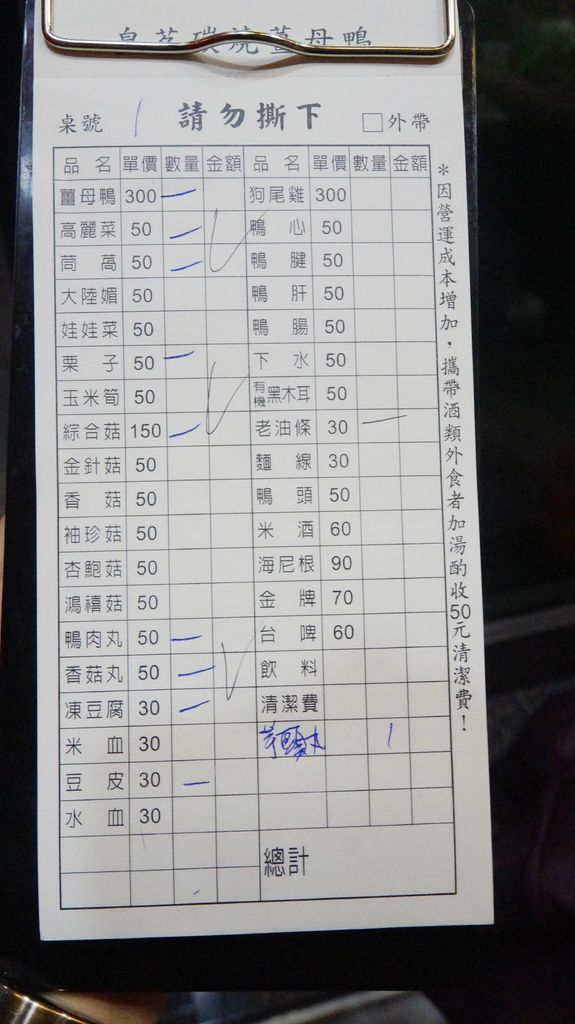 薑母鴨
桌號 1 請勿撕下 □外帶
品名 單價 數量 金額 品名 單價 數量 金額
薑母鴨 300 一 狗尾雞 300
高麗菜 50 一 鴨心 50
茼萵 50 一 鴨腱 50
大陸媚 50 鴨肝 50
娃娃菜 50 鴨腸 50
栗子 50 一 下水 50
玉米筍 50 有機黑木耳 50
綜合菇 150 一 老油條 30 一
金針菇 50 麵線 30
香菇 50 鴨頭 50
袖珍菇 50 米酒 60
杏鮑菇 50 海尼根 90
鴻禧菇 50 金牌 70
鴨肉丸 50 一 台啤 60
香菇丸 50 一 飲料
凍豆腐 30 一 清潔費
米血 30 芋頭丸 1
豆皮 30 一
水血 30
總計
*因營運成本增加，攜帶酒類外食者加湯酌收50元清潔費！